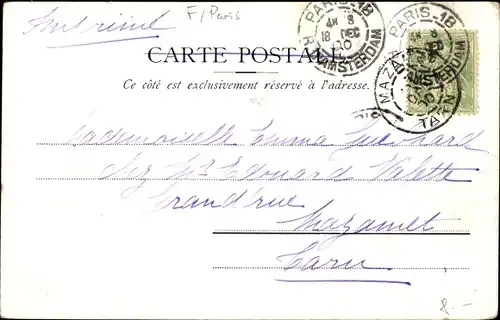 Imprimé
F/Paris
PARIS-18
4M 8
18 DEC
00
R. AMSTERDAM
PARIS-18
AMSTERDAM
MAZAMET
TARN
CARTE POSTALE
Ce côté est exclusivement réservé à l'adresse.
Mademoiselle Emma
chez Mr Edouard Valette
Grand'rue
Mazamet
Tarn
8.-